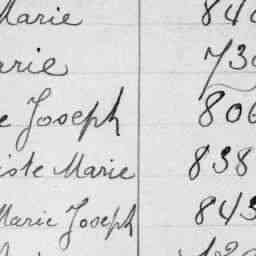 Marie 840
arie 730
e Joseph 806
iste Marie 838
Marie Joseph 843